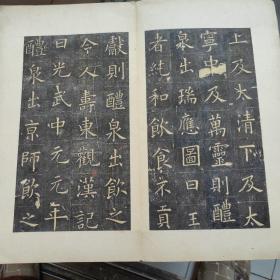 上及太清下及太
寧中及萬靈則醴
泉出瑞應圖曰王
者純和飲食不貢
獻則醴泉出飲之
令人壽東觀漢記
曰光武中元元年
醴泉出京師飲之